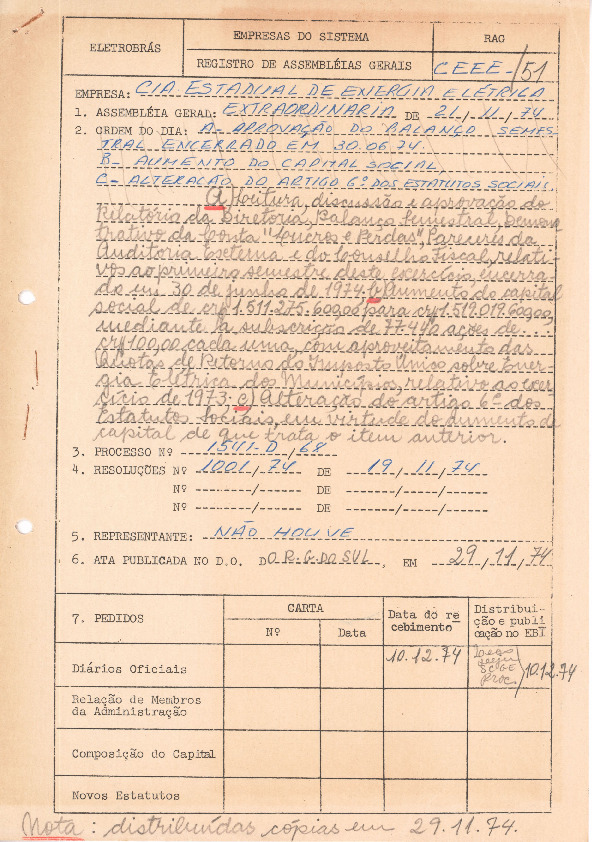 ELETROBRÁS
EMPRESAS DO SISTEMA
RAG
REGISTRO DE ASSEMBLÉIAS GERAIS
CEEE-/51
EMPRESA: CIA ESTADUAL DE ENERGIA ELÉTRICA
1. ASSEMBLÉIA GERAL: EXTRAORDINARIA DE 21/11/74
2. ORDEM DO DIA: A- APROVAÇÃO DO BALANÇO SEMES
TRAL ENCERRADO EM 30.06.74.
B- AUMENTO DO CAPITAL SOCIAL,
C- ALTERAÇÃO DO ARTIGO 6º DOS ESTATUTOS SOCIAIS.
a) Leitura, discussão e aprovação do
Relatório da Diretoria, Balanço Semestral, Demons
trativo da Conta "Lucros e Perdas", Pareceres da
Auditoria Externa e do Conselho Fiscal, relati-
vos ao primeiro semestre deste exercício, encerra-
do em 30 de junho de 1974. b) Aumento do capital
social de cr$1.511.275.600,00 para cr$1.519.019.600,00,
mediante a subscrição de 77.440 ações de
cr$100,00 cada uma, com aproveitamento das
Quotas de Retorno do Imposto Único sobre Ener-
gia Elétrica dos Municípios, relativo ao exer
cício de 1973. c) Alteração do artigo 6º dos
Estatutos Sociais, em virtude do aumento de
capital de que trata o item anterior.
3. PROCESSO Nº 1541-D/68
4. RESOLUÇÕES Nº 1001/74 DE 19/11/74
Nº ------/----- DE -----/----/-----
Nº ------/----- DE -----/----/-----
5. REPRESENTANTE: NÃO HOUVE
6. ATA PUBLICADA NO D.O. DO R.G.DO SUL, EM 29/11/74
7. PEDIDOS
CARTA
Nº
Data
Data do re
cebimento
Distribui-
ção e publi
cação no EBI
Diários Oficiais
10.12.74
SCGE
Proc.
10.12.74
Relação de Membros
da Administração
Composição do Capital
Novos Estatutos
Nota: distribuídas cópias em 29.11.74.